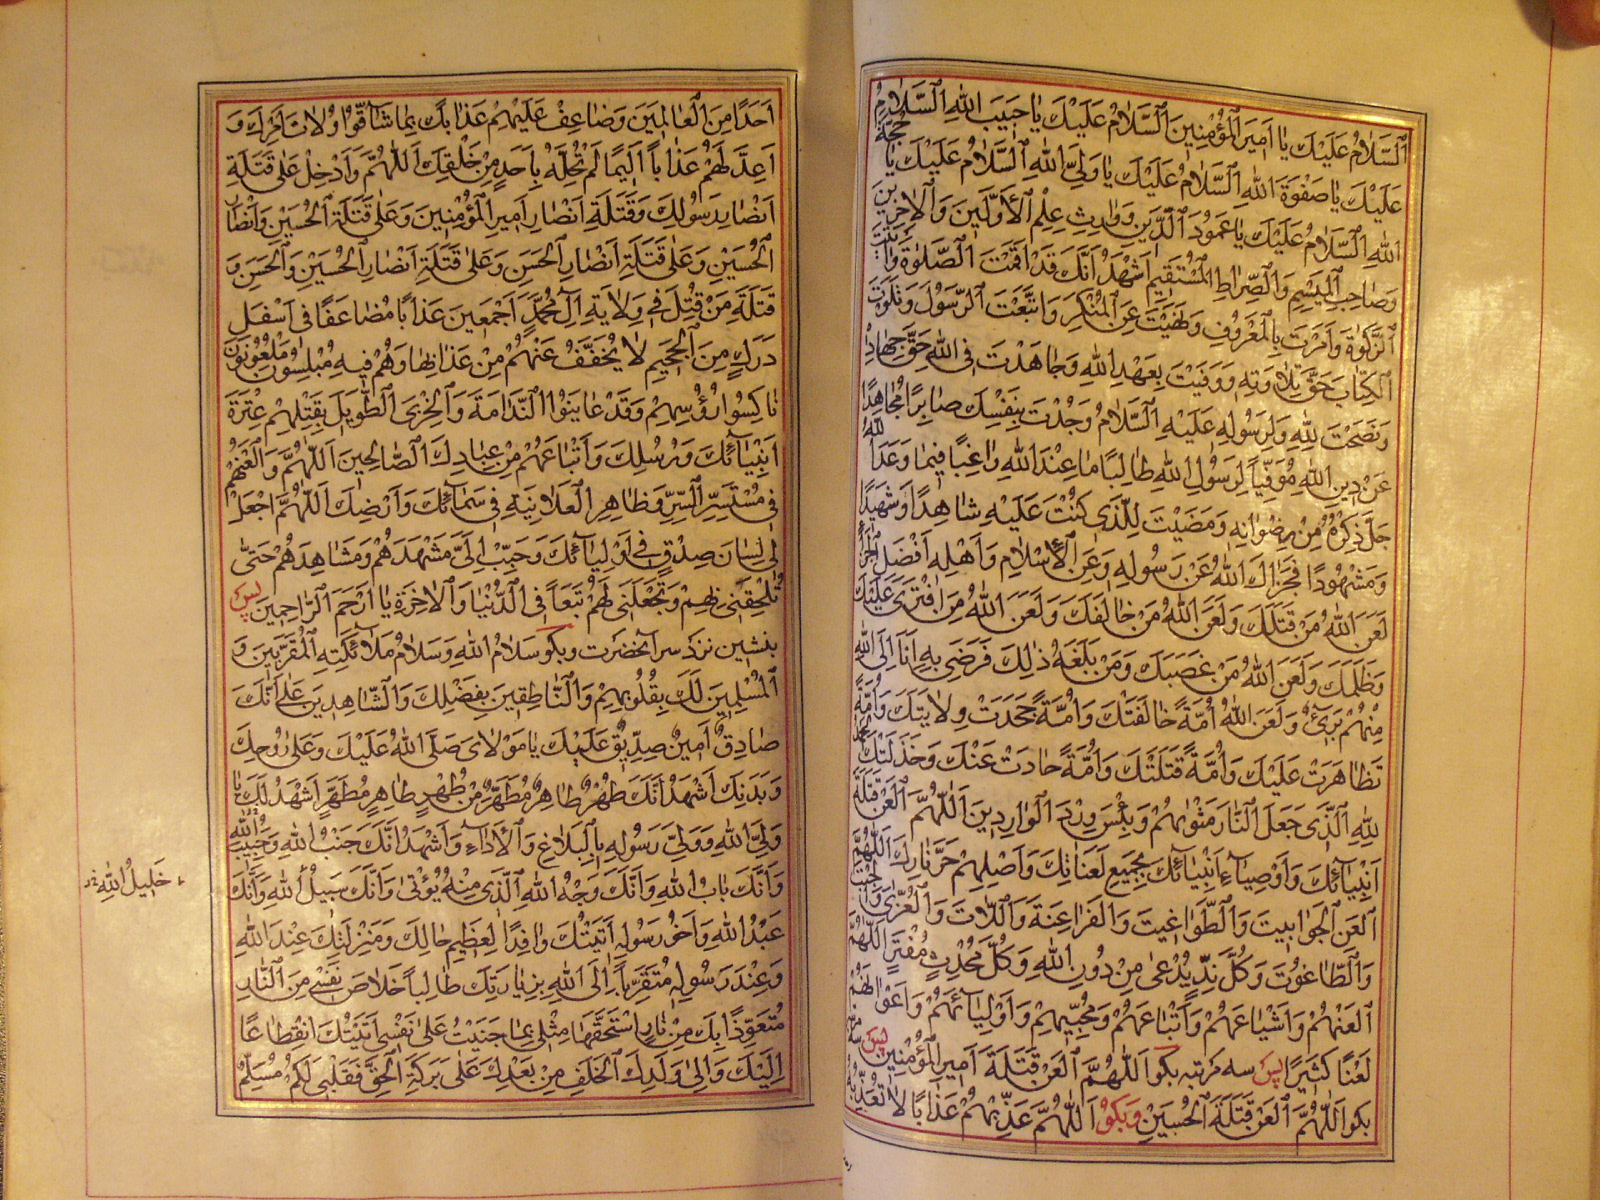 اَلسَّلامُ عَلَيْكَ يا اَميرَ الْمُؤْمِنينَ اَلسَّلامُ عَلَيْكَ يا حَبيبَ اللهِ اَلسَّلامُ
عَلَيْكَ يا صَفْوَةَ اللهِ اَلسَّلامُ عَلَيْكَ يا وَلِيَّ اللهِ اَلسَّلامُ عَلَيْكَ يا حُجَّةَ
اللهِ اَلسَّلامُ عَلَيْكَ يا عَمُودَ الدّينِ وَوارِثَ عِلْمِ الْاَوَّلينَ وَالْاخِرينَ
وَصاحِبَ الْميسَمِ وَالصِّراطِ الْمُسْتَقيمِ اَشْهَدُ اَنَّكَ قَدْ اَقَمْتَ الصَّلوةَ وَاتَيْتَ
الزَّكوةَ وَاَمَرْتَ بِالْمَعْرُوفِ وَنَهَيْتَ عَنِ الْمُنْكَرِ وَاتَّبَعْتَ الرَّسُولَ وَتَلَوْتَ
الْكِتابَ حَقَّ تِلاوَتِهِ وَوَفَيْتَ بِعَهْدِ اللهِ وَجاهَدْتَ فِي اللهِ حَقَّ جِهادِهِ
وَنَصَحْتَ لِلّهِ وَلِرَسُولِهِ عَلَيْهِ السَّلامُ وَجُدْتَ بِنَفْسِكَ صابِرًا مُجاهِدًا
عَنْ دينِ اللهِ مُوَقِّيًا لِرَسُولِ اللهِ طالِبًا ما عِنْدَ اللهِ راغِبًا فيما وَعَدَ اللهُ
جَلَّ ذِكْرُهُ مِنْ رِضْوانِهِ وَمَضَيْتَ لِلَّذى كُنْتَ عَلَيْهِ شاهِدًا وَشَهيدًا
وَمَشْهُودًا فَجَزاكَ اللهُ عَنْ رَسُولِهِ وَعَنِ الْاِسْلامِ وَاَهْلِهِ اَفْضَلَ الْجَزاءِ
لَعَنَ اللهُ مَنْ قَتَلَكَ وَلَعَنَ اللهُ مَنْ خالَفَكَ وَلَعَنَ اللهُ مَنِ افْتَرى عَلَيْكَ
وَظَلَمَكَ وَلَعَنَ اللهُ مَنْ غَصَبَكَ وَمَنْ بَلَغَهُ ذلِكَ فَرَضِيَ بِهِ اَنَا اِلَى اللهِ
مِنْهُمْ بَرئٌ وَلَعَنَ اللهُ اُمَّةً خالَفَتْكَ وَاُمَّةً جَحَدَتْ وِلايَتَكَ وَاُمَّةً
تَظاهَرَتْ عَلَيْكَ وَاُمَّةً قَتَلَتْكَ وَاُمَّةً حادَتْ عَنْكَ وَخَذَلَتْكَ اَلْحَمْدُ
لِلّهِ الَّذى جَعَلَ النّارَ مَثْويهُمْ وَبِئْسَ وِرْدُ الْوارِدينَ اَللّهُمَّ الْعَنْ قَتَلَةَ
اَنْبِيائِكَ وَاَوْصِياءِ اَنْبِيائِكَ بِجَميعِ لَعَناتِكَ وَاَصْلِهِمْ حَرَّ نارِكَ اَللّهُمَّ
الْعَنِ الْجَوابيتَ وَالطَّواغيتَ وَالْفَراعِنَةَ وَاللّاتَ وَالْعُزّى وَالْجِبْتَ
وَالطّاغُوتَ وَكُلَّ نِدٍّ يُدْعى مِنْ دُونِ اللهِ وَكُلَّ مُحْدِثٍ مُفْتَرٍ اَللّهُمَّ
الْعَنْهُمْ وَاَشْياعَهُمْ وَاَتْباعَهُمْ وَمُحِبّيهِمْ وَاَوْلِيائَهُمْ وَاَعْوانَهُمْ
لَعْنًا كَثيرًا پس سه مرتبه بكو اَللّهُمَّ الْعَنْ قَتَلَةَ اَميرِ الْمُؤْمِنينَ پس سه مرتبه
بكو اَللّهُمَّ الْعَنْ قَتَلَةَ الْحُسَيْنِ وبكو اَللّهُمَّ عَذِّبْهُمْ عَذابًا لا تُعَذِّبُهُ
اَحَدًا مِنَ الْعالَمينَ وَضاعِفْ عَلَيْهِمْ عَذابَكَ بِما شاقُّوا وُلاةَ اَمْرِكَ وَ
اَعِدَّ لَهُمْ عَذابًا اَليمًا لَمْ تُحِلَّهُ بِاَحَدٍ مِنْ خَلْقِكَ اَللّهُمَّ وَاَدْخِلْ عَلى قَتَلَةِ
اَنْصارِ رَسُولِكَ وَقَتَلَةِ اَنْصارِ اَميرِ الْمُؤْمِنينَ وَعَلى قَتَلَةِ الْحُسَيْنِ وَاَنْصارِ
الْحُسَيْنِ وَعَلى قَتَلَةِ اَنْصارِ الْحَسَنِ وَعَلى قَتَلَةِ اَنْصارِ الْحُسَيْنِ وَالْحَسَنِ وَ
قَتَلَةِ مَنْ قُتِلَ فى وِلايَةِ الِ مُحَمَّدٍ اَجْمَعينَ عَذابًا مُضاعَفًا فى اَسْفَلِ
دَرَكٍ مِنَ الْجَحيمِ لا يُخَفَّفُ عَنْهُمْ مِنْ عَذابِها وَهُمْ فيهِ مُبْلِسُونَ مَلْعُونُونَ
ناكِسُوا رُؤُسِهِمْ وَقَدْ عايَنُوا النَّدامَةَ وَالْخِزْىَ الطَّويلَ بِقَتْلِهِمْ عِتْرَةَ
اَنْبِيائِكَ وَرُسُلِكَ وَاَتْباعَهُمْ مِنْ عِبادِكَ الصّالِحينَ اَللّهُمَّ وَالْعَنْهُمْ
فى مُسْتَسِرِّ السِّرِّ وَظاهِرِ الْعَلانِيَةِ فى سَمائِكَ وَاَرْضِكَ اَللّهُمَّ اجْعَلْ
لى لِسانَ صِدْقٍ فى اَوْلِيائِكَ وَحَبِّبْ اِلَىَّ مَشْهَدَهُمْ وَمَشاهِدَهُمْ حَتّى
تُلْحِقَنى بِهِمْ وَتَجْعَلَنى لَهُمْ تَبَعًا فِى الدُّنْيا وَالْاخِرَةِ يا اَرْحَمَ الرّاحِمينَ پس
بنشين نزد سر آنحضرت وبكو سَلامُ اللهِ وَسَلامُ مَلائِكَتِهِ الْمُقَرَّبينَ وَ
الْمُسْلِمينَ لَكَ بِقُلُوبِهِمْ وَالنّاطِقينَ بِفَضْلِكَ وَالشّاهِدينَ عَلى اَنَّكَ
صادِقٌ اَمينٌ صِدّيقٌ عَلَيْكَ يا مَوْلاىَ صَلَّى اللهُ عَلَيْكَ وَعَلى رُوحِكَ
وَبَدَنِكَ اَشْهَدُ اَنَّكَ طُهْرٌ طاهِرٌ مُطَهَّرٌ مِنْ طُهْرٍ طاهِرٍ مُطَهَّرٍ اَشْهَدُ لَكَ يا
وَلِىَّ اللهِ وَوَلِىَّ رَسُولِهِ بِالْبَلاغِ وَالْاَداءِ وَاَشْهَدُ اَنَّكَ جَنْبُ اللهِ وَحَبيبُ اللهِ
وَاَنَّكَ بابُ اللهِ وَاَنَّكَ وَجْهُ اللهِ الَّذى مِنْهُ يُؤْتى وَاَنَّكَ سَبيلُ اللهِ وَاَنَّكَ
خَليلُ اللهِ
عَبْدُ اللهِ وَاَخُو رَسُولِهِ اَتَيْتُكَ وافِدًا لِعَظيمِ حالِكَ وَمَنْزِلَتِكَ عِنْدَ اللهِ
وَعِنْدَ رَسُولِهِ مُتَقَرِّبًا اِلَى اللهِ بِزِيارَتِكَ طالِبًا خَلاصَ نَفْسى مِنَ النّارِ
مُتَعَوِّذًا بِكَ مِنْ نارٍ اسْتَحَقَّها مِثْلى بِما جَنَيْتُ عَلى نَفْسى اَتَيْتُكَ انْقِطاعًا
اِلَيْكَ وَاِلى وَلَدِكَ الْخَلَفِ مِنْ بَعْدِكَ عَلى بَرَكَةِ الْحَقِّ فَقَلْبى لَكُمْ مُسَلِّمٌ